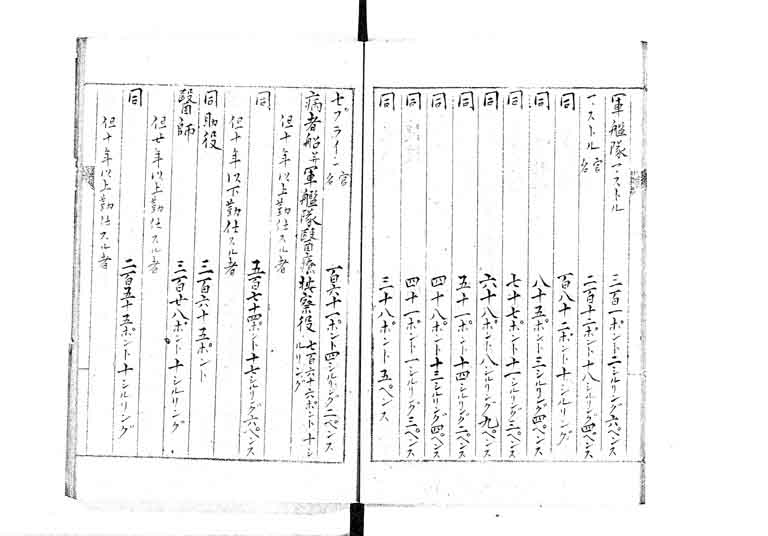 軍艦隊マストル　三百一ポント二シルリング六ペンス
マストル官名　二百十二ポント十八シルリング四ペンス
同　百八十二ポント十シルリング
同　八十五ポント三シルリング四ペンス
同　七十七ポント十一シルリング三ペンス
同　六十八ポント八シルリング九ペンス
同　五十一ポント十四シルリング二ペンス
同　四十八ポント十三シルリング四ペンス
同　四十一ポント一シルリング三ペンス
同　三十八ポント五ペンス
七プライン官名　一百六十一ポント四シルリング二ペンス
病者船並軍艦隊醫療按察役　七百六十六ポント十シルリング
但十年以上勤仕スル者
同　五百七十四ポント十七シルリング六ペンス
但十年以下勤仕スル者
同助役　三百六十五ポント
醫師　三百廿八ポント十シルリング
但廿年以上勤仕スル者
同　二百五十五ポント十シルリング
但十年以上勤仕スル者